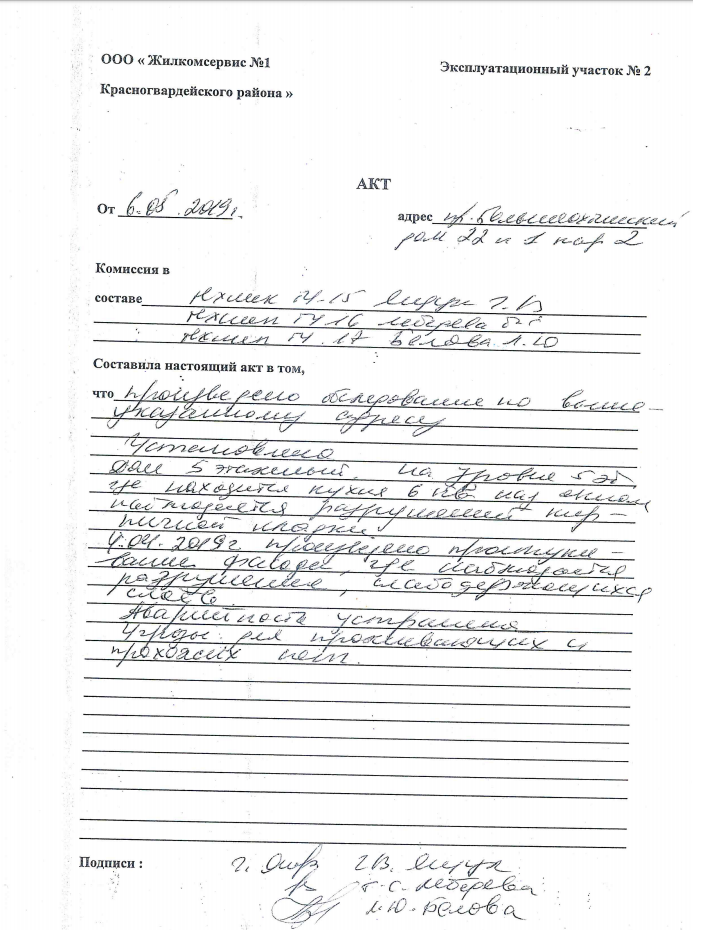 ООО « Жилкомсервис №1
Эксплуатационный участок № 2
Красногвардейского района »
АКТ
От 6.05.2019г.
адрес пр. Большеохтинский
дом 22 к 1 пар 2
Комиссия в
составе техник ТУ-15 Ящук Г.В
техник ТУ 16 Лебедева
техник ТУ. 17 Белова Л.Ю
Составила настоящий акт в том,
что произведено обследование по выше-
указанному адресу
Установлено
Дом 5 этажный. На уровне 5 эт,
где находится кухня 6 кв над окном
наблюдается разрушений кир-
пичной кладки
4.04.2019г произведено простуки-
вание фасада, где наблюдается
разрушения, слабодержащихся
слоёв.
Аварийность устранена
Угрозы для проживающих и
прохожих нет.
Подписи :
Г.В. Ящук
Лебедева
Л.Ю. Белова